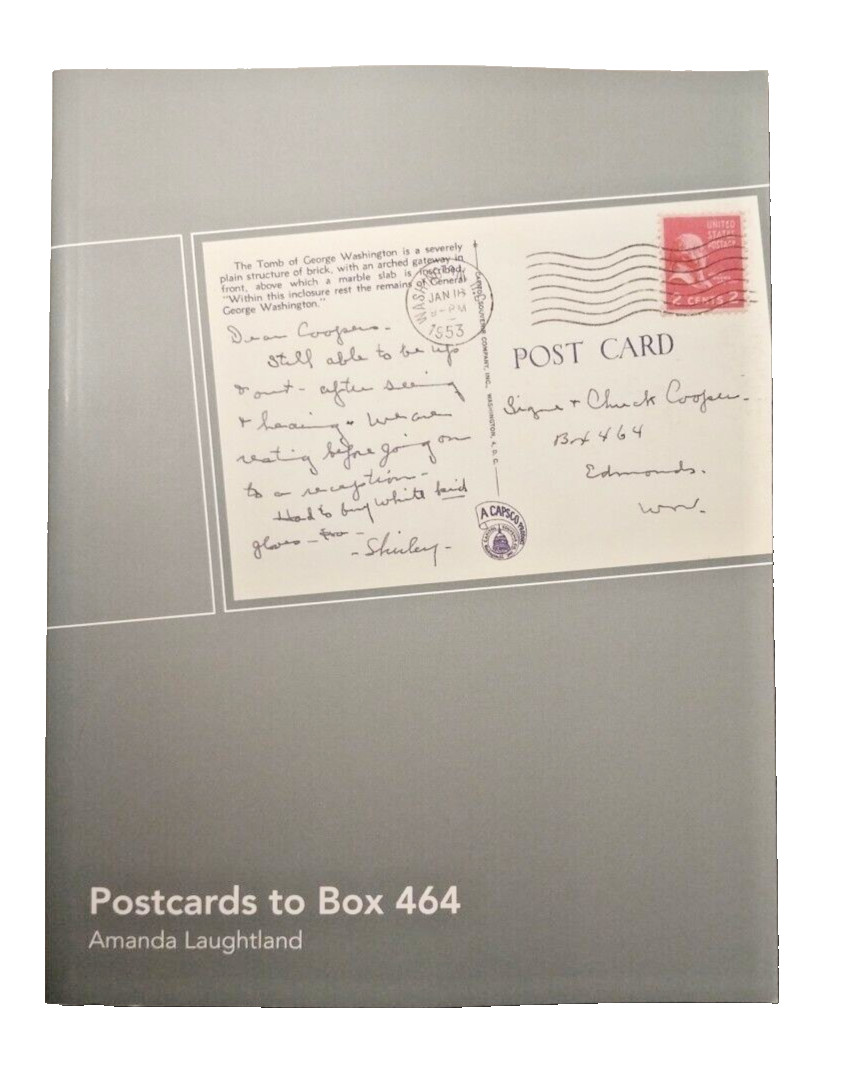 The Tomb of George Washington is a severely
plain structure of brick, with an arched gateway in
front, above which a marble slab is inscribed,
"Within this inclosure rest the remains of General
George Washington."
JAN 18
PM
1953
UNITED
STATES
POSTAGE
2 CENTS 2
POST CARD
CAPSCO SOUVENIR COMPANY, INC., WASHINGTON, D. C.
Dear Coopers -
Still able to be up
& out - after seeing
& hearing. We are
resting before going on
to a reception -
Had to buy white kid
gloves -
- Shirley -
Signe + Chuck Cooper -
Box 464
Edmonds.
Wn.
A CAPSCO
Postcards to Box 464
Amanda Laughtland